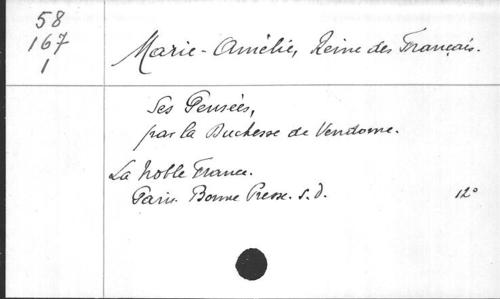 58
167
1
Marie-Amélie, Reine des Français.
Ses Pensées,
par la Duchesse de Vendome.
La Noble France.
Paris. Bonne Presse. s.d. 12°